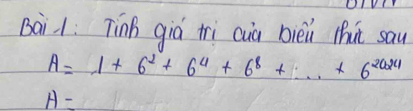 Bài 1: Tính giá trị của biểu thức sau
A = 1 + 6² + 6⁴ + 6⁸ + ... + 6²⁰²⁴
A =